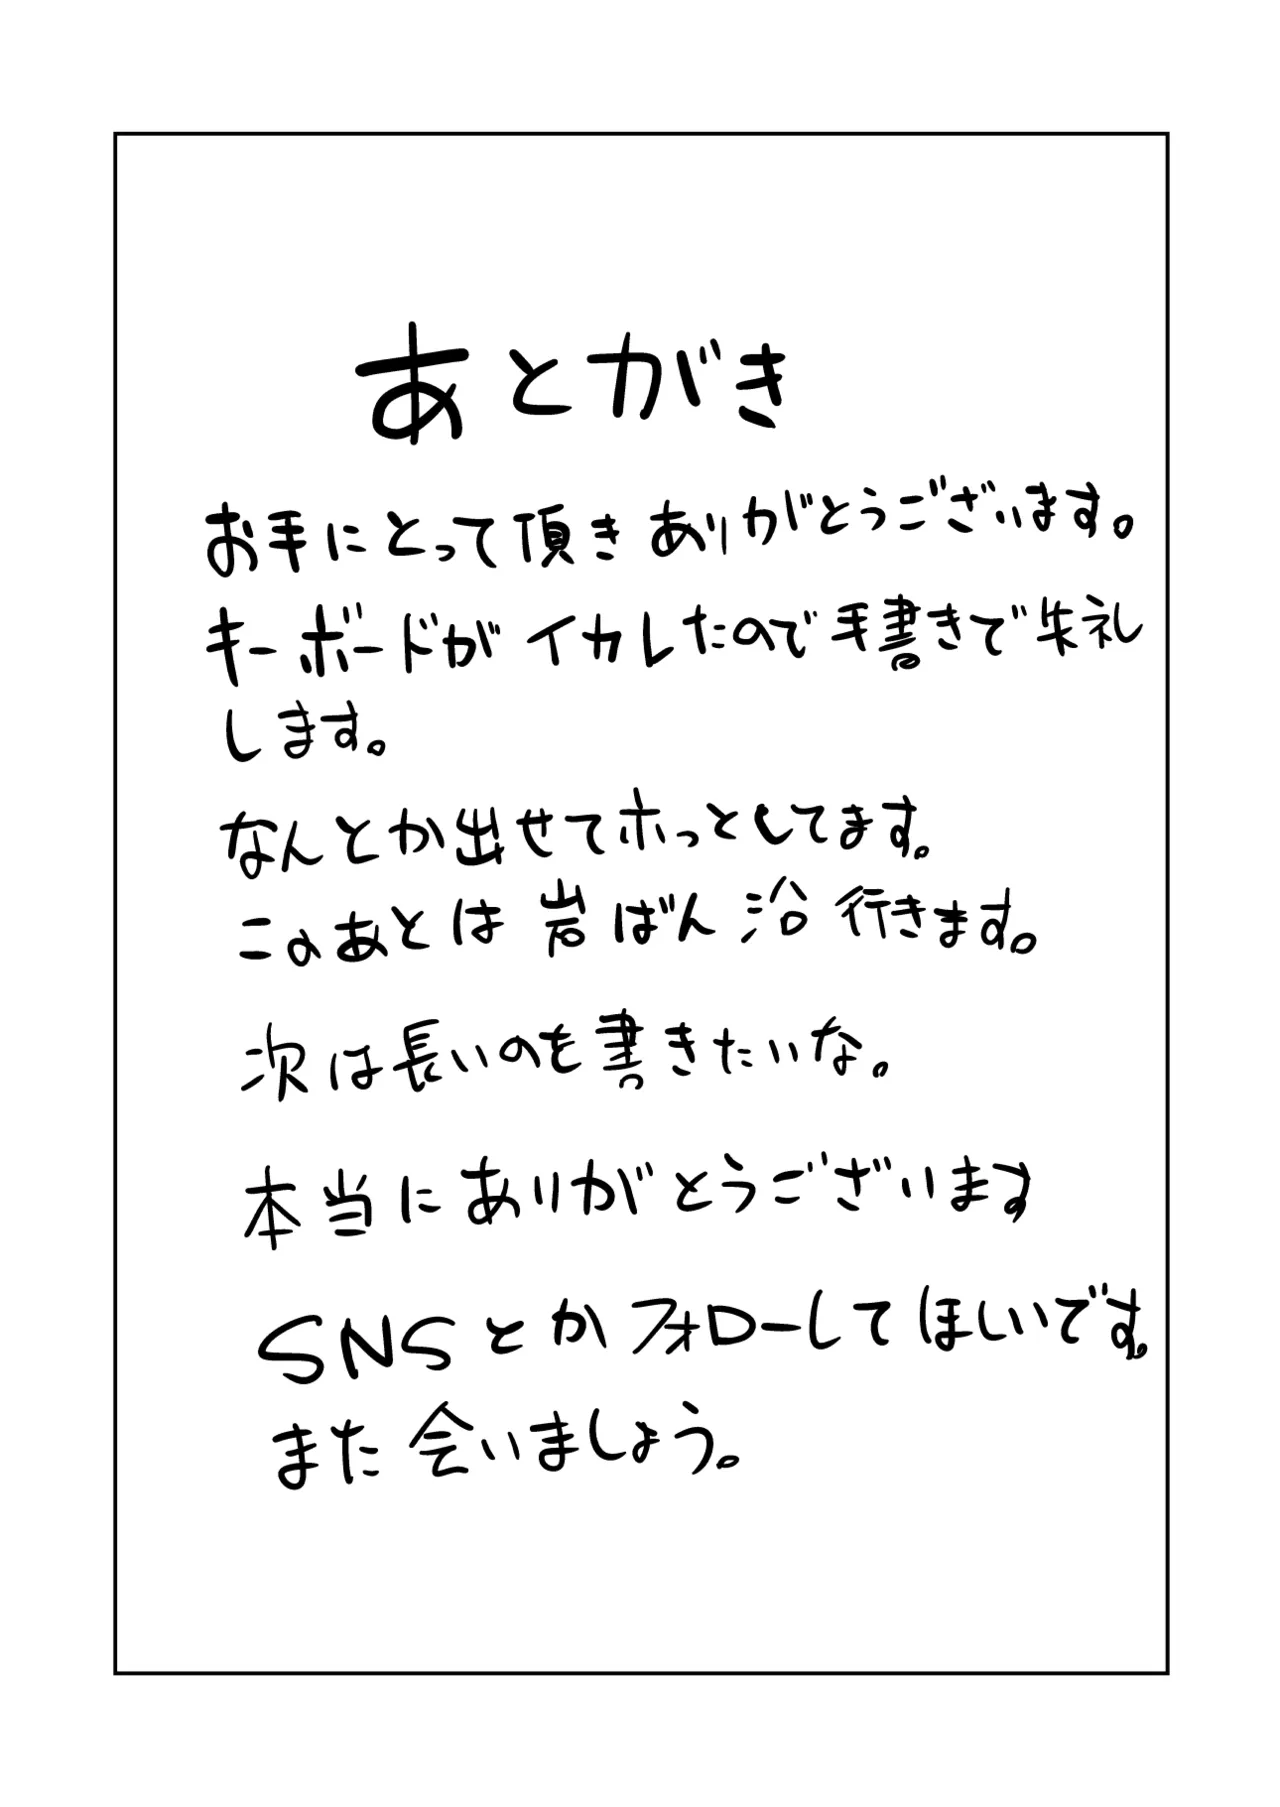 あとがき
お手にとって頂きありがとうございます。
キーボードがイカレたので手書きで失礼
します。
なんとか出せてホッとしてます。
このあとは岩ばん沿行きます。
次は長いのを書きたいな。
本当にありがとうございます
SNSとかフォローしてほしいです。
また会いましょう。